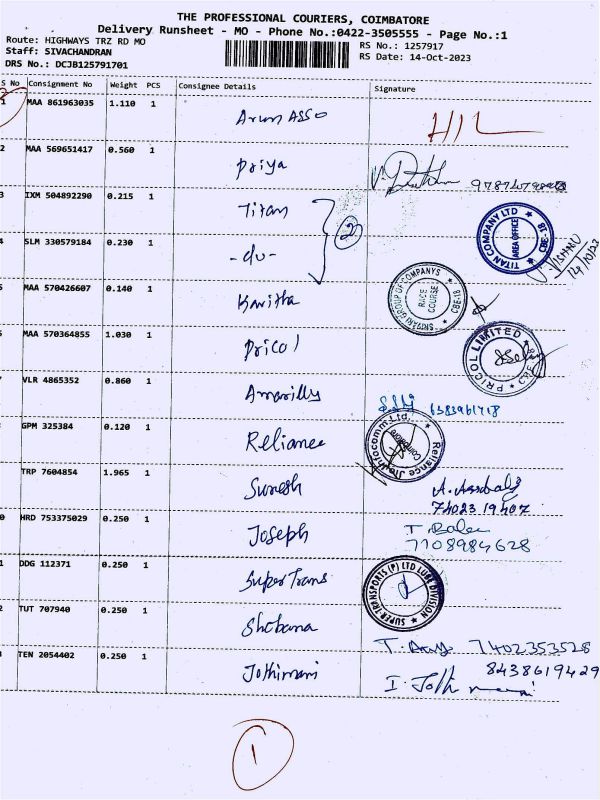 THE PROFESSIONAL COURIERS, COIMBATORE
Delivery Runsheet - MO - Phone No.:0422-3505555 - Page No.:1
Route: HIGHWAYS TRZ RD MO
Staff: SIVACHANDRAN
DRS No.: DCJB125791701
RS No.: 1257917
RS Date: 14-Oct-2023
S No Consignment No Weight PCS Consignee Details Signature
1 MAA 861963035 1.110 1 Arun ASSO
2 MAA 569651417 0.560 1 Priya
3 IXM 504892290 0.215 1 Titan
TITAN COMPANY LTD AREA OFFICE CBE-18
4 SLM 330579184 0.230 1 -du- 2
VISHNU
14/10/23
5 MAA 570426607 0.140 1 Kavitha
GROUP OF COMPANYS RACE COURSE CBE-18
MAA 570364855 1.030 1 Pricol
PRICOL LIMITED CBE
VLR 4865352 0.860 1 Amarilly
6383961718
GPM 325384 0.120 1 Reliance
Reliance Jio Infocomm.Ltd. Coimbatore
TRP 7604854 1.965 1 Suresh
74023 19407
0 HRD 753375029 0.250 1 Joseph T. Balee
7708984628
1 DDG 112371 0.250 1 Super Trans
SUPER-TRANSPORTS (P) LTD LUBE DIVISION
2 TUT 707940 0.250 1 Shobana
7402353528
TEN 2054402 0.250 1 Jothimani
8438619429
I. Joth
1